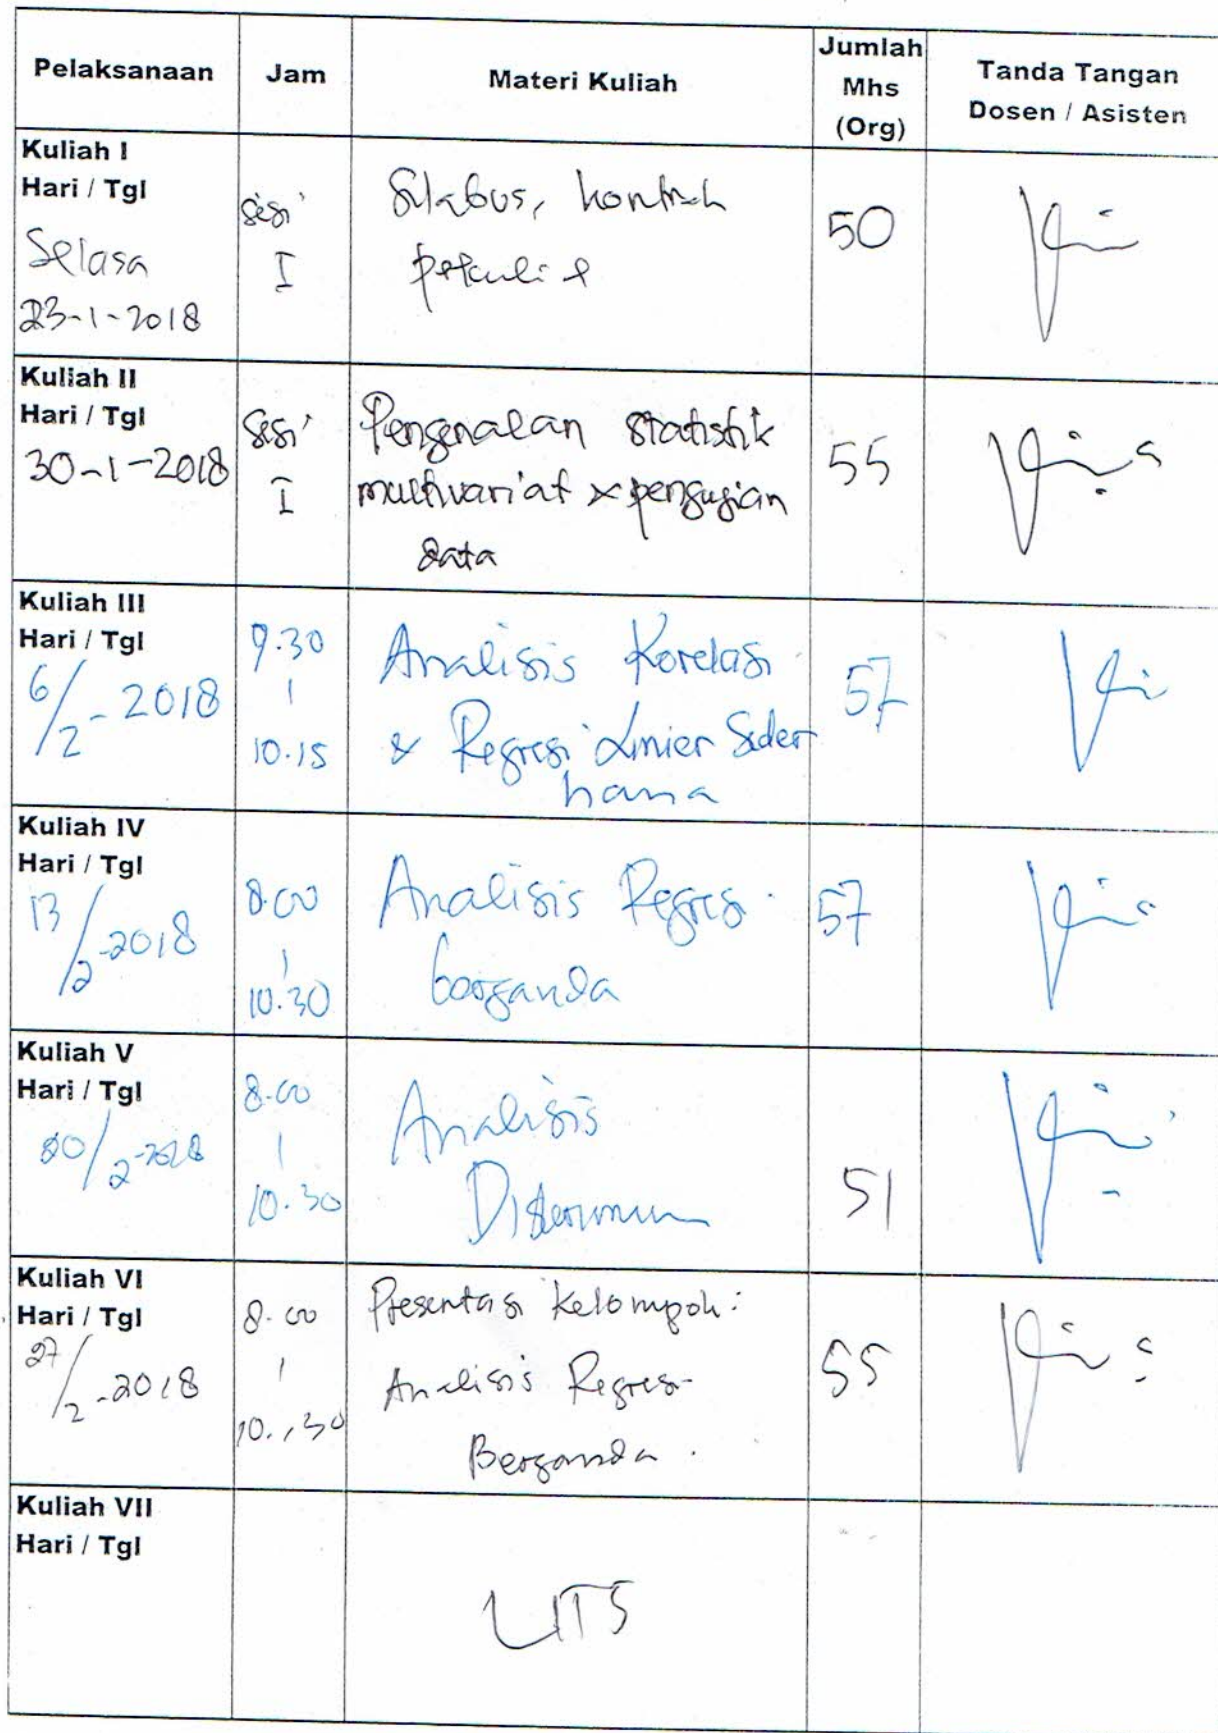 Pelaksanaan Jam Materi Kuliah Jumlah Mhs (Org) Tanda Tangan Dosen / Asisten
Kuliah I
Hari / Tgl
Selasa
23-1-2018
sesi
I
Silabus, kontrak
50
Kuliah II
Hari / Tgl
30-1-2018
sesi
I
Pengenalan statistik
multivariat & pengujian
data
55
Kuliah III
Hari / Tgl
6/2-2018
9.30
|
10.15
Analisis Korelasi
& Regresi Linier Seder
hana
57
Kuliah IV
Hari / Tgl
13/2-2018
8.00
|
10.30
Analisis Regresi
berganda
57
Kuliah V
Hari / Tgl
20/2-2018
8.00
|
10.30
Analisis
51
Kuliah VI
Hari / Tgl
27/2-2018
8.00
|
10.30
Presentasi Kelompok:
Analisis Regresi
Berganda.
55
Kuliah VII
Hari / Tgl
UTS